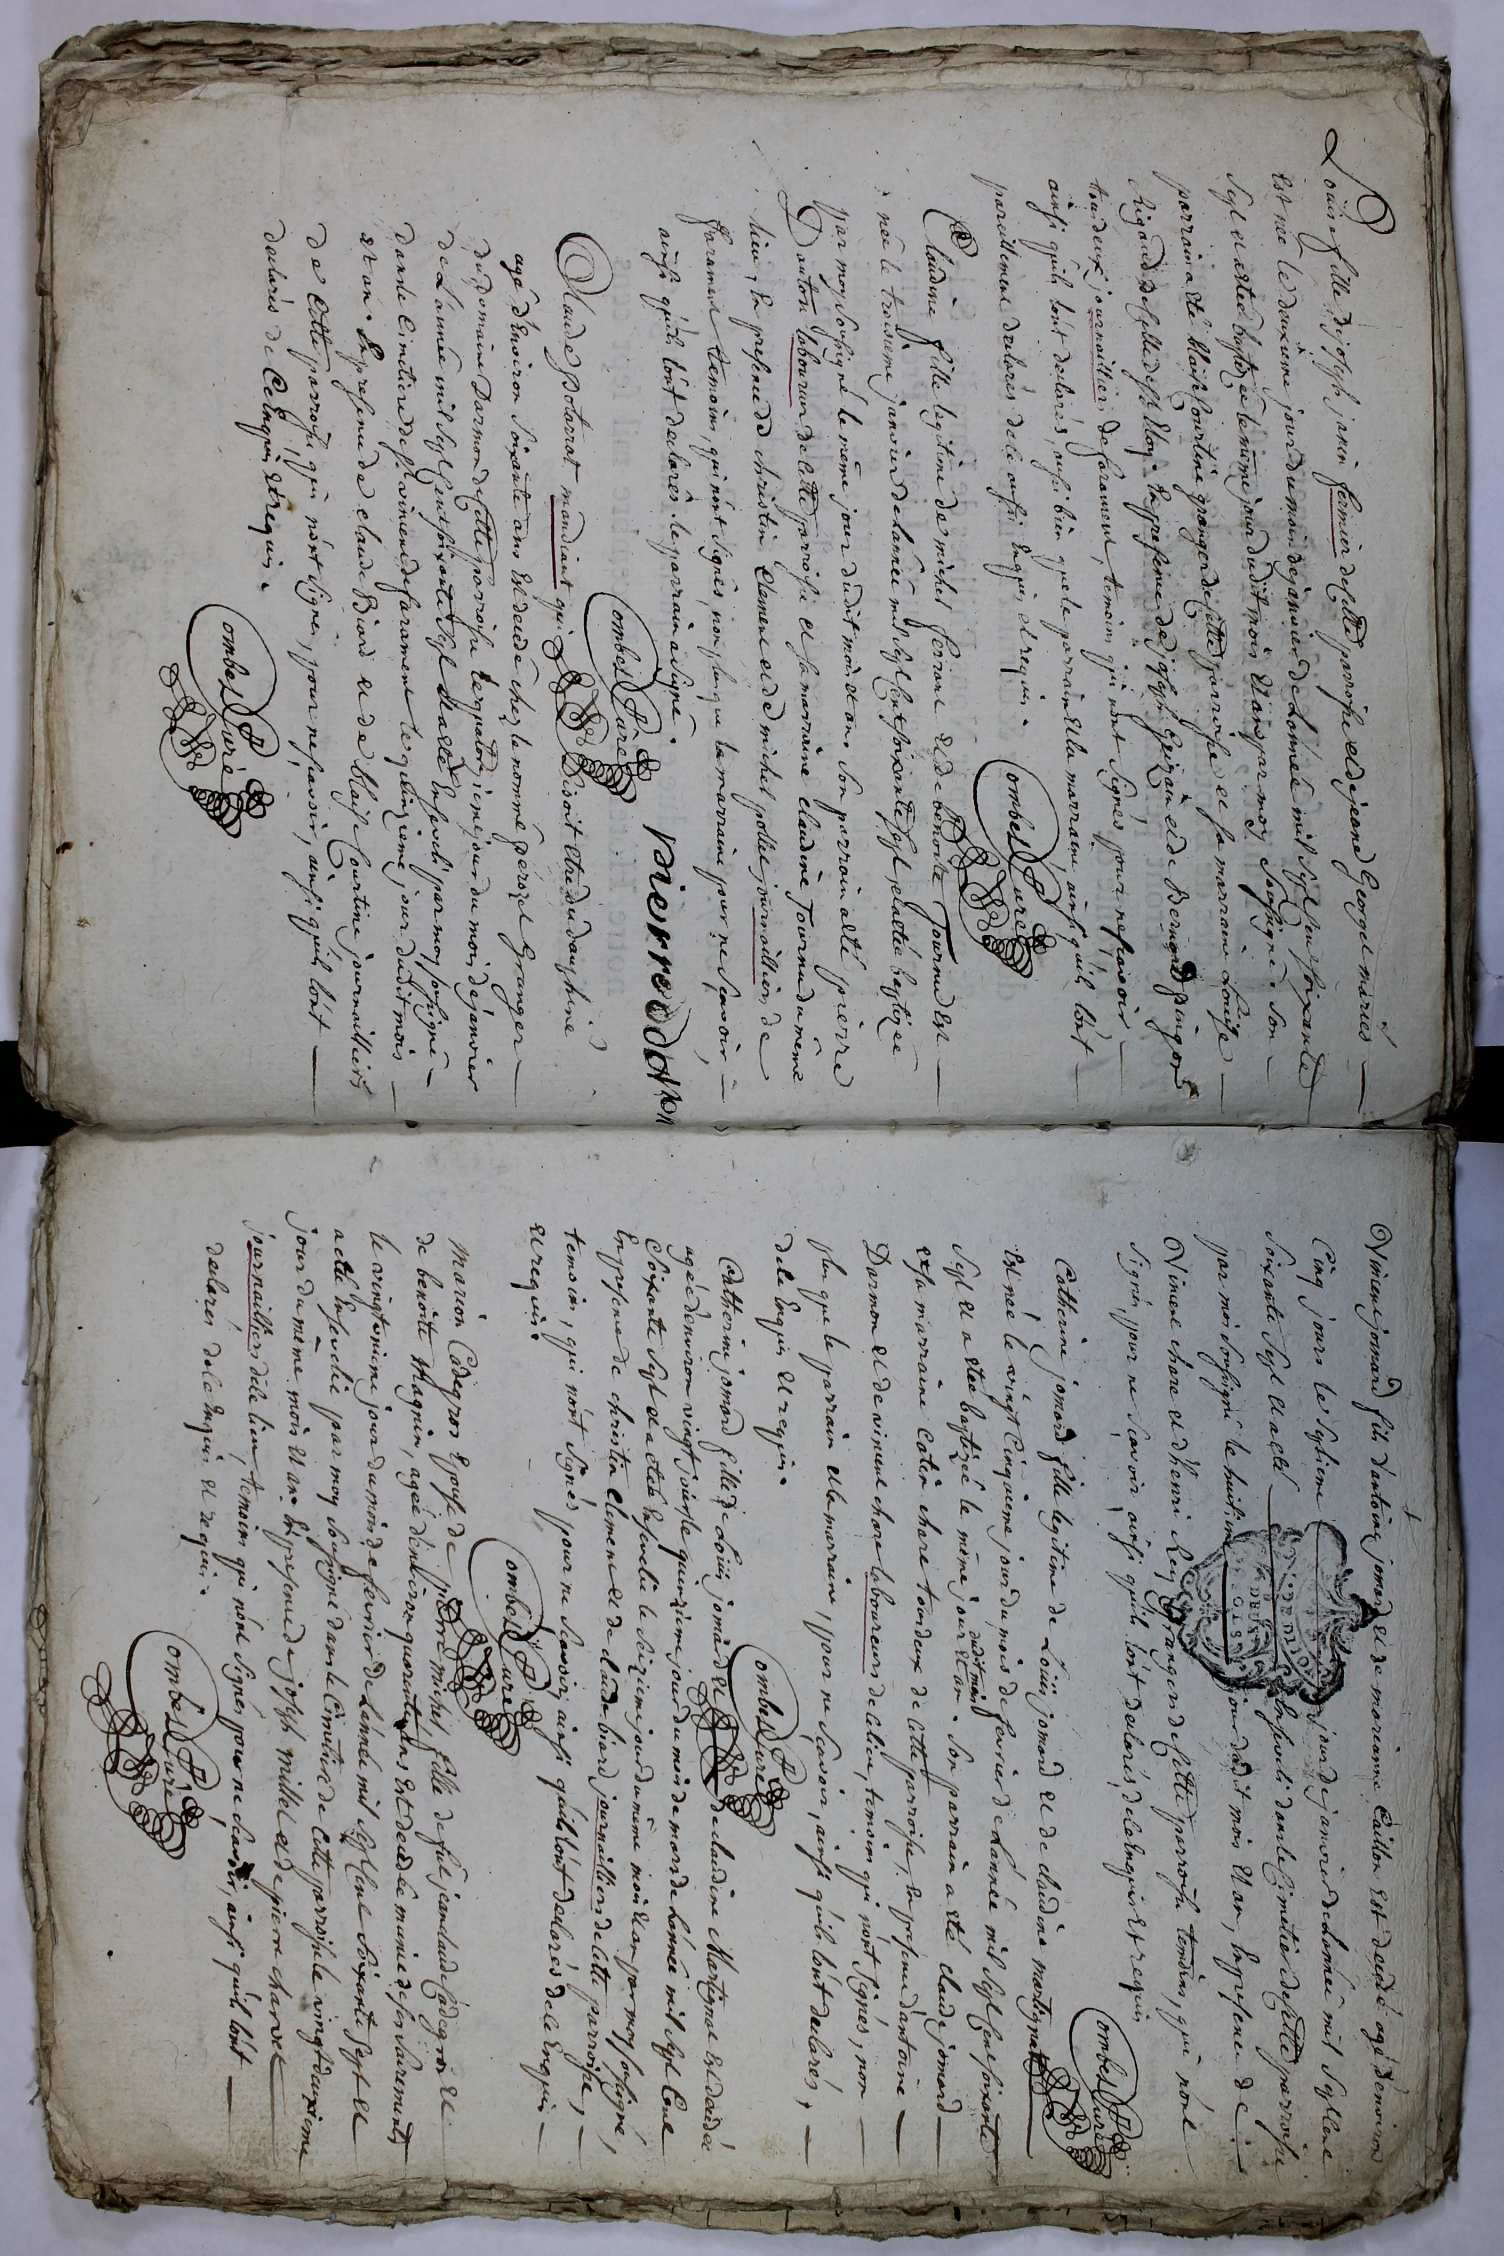 Loüise fille de joseph janin fermier de cette parroisse et de jeane George mariés
est née le deuxième jour du mois de janvier de L'année mil sept cent soixante
sept et a etée baptizée le même jour dudit mois et an par moy soussigné. Son
parrain a été blaise Courtine granger de cette parroisse et sa marraine Louise
Rigaud de celle de st Eloy. En presence de joseph et de Bernard
tous deux journailliers de faramend, temoins qui n'ont signés pour ne scavoir
ainsi qu'ils l'ont declarés, aussi bien que le parrain et la marraine, ainsi qu'ils l'ont
pareillement declarés de ce aussi enquis et requis.
Combes Curé
Claudine fille legitime de michel ferrant et de benoite Tournu est
née le troisieme janvier de l'année mil sept cent soixante sept et a etée baptizée
par moy soussigné le même jour dudit mois et an. Son parrain a été pierre
Dauton laboureur de cette parroisse et sa marraine claudine Tournu du même
lieu, en presence de christin Clement et de michel pollet journailliers de
faramend temoins, qui n'ont signés, non plus que la marraine pour ne scavoir,
ainsi qu'ils l'ont declarés. le parrain a signé.
Combes Curé pierre daton
Claude potarrat mandiant qui disoit etre du dauphiné
agé d'environ soixante ans est decedé chez le nommé Granger
du domaine Darmon de cette parroisse le quatorzieme jour du mois de janvier
de L'année mil sept cent soixante sept et a été enseveli par moy soussigné
dans le Cimetiere de st vincend de faramend le quinzieme jour dudit mois
et an. En presence de claude Biord et de blaise Courtine journailliers
de cette parroisse qui n'ont signés, pour ne scavoir, ainsi qu'ils l'ont
declarés de ce enquis et requis.
Combes Curé
Vincent jomard fils d'antoine jomard et de marianne Caillon est decedé agé d'environ
Cinq jours le septieme jour de janvier de L'année mil sept cent
soixante sept et a été enseveli dans le Cimetiere de cette parroisse
par moi soussigné le huitieme jour dudit mois et an, En presence de
Vincent chare et d'henri Rey Granger de cette parroisse temoins, qui n'ont
signés, pour ne scavoir, ainsi qu'ils l'ont declarés, de ce enquis et requis
Combes Curé
Catherine jomard fille legitime de Loüis jomard et de claudine martignat
est née le vingt cinquieme jour du mois de fevrier de L'année mil sept cent soixante
sept et a etée baptizée le même jour dudit mois et an. Son parrain a été claude jomard
et sa marraine Catin chare tous deux de cette parroisse, En presence d'antoine
Darmon et de vincent chare laboureurs de ce lieu, temoins qui n'ont signés, non
plus que le parrain et la marraine, pour ne scavoir, ainsi qu'ils l'ont declarés,
de ce enquis et requis.
Combes Curé
Catherine jomard fille de Loüis jomard et de claudine Martignat est decedée
agée d'environ vingt jours le quinzieme jour du mois de mars de L'année mil sept cent
soixante sept et a etée ensevelie le seizieme jour du même mois et an par moy soussigné,
En presence de christin Clement et de claude biord journailliers de cette parroisse,
temoins, qui n'ont signés pour ne scavoir, ainsi qu'ils l'ont declarés de ce enquis
et requis.
Combes Curé
Marion Cadegros Epouse de pierre michel fille de fût jean claude Cadegros et
de benoitte Magnin, agée d'environ quarante ans est decedée munie de ses sacrements
le vingt unieme jour du mois de fevrier de L'année mil sept cent soixante sept et
a etée ensevelie par moy soussigné dans le Cimetiere de cette parroisse le vingt deuxieme
jour du même mois et an. En presence de joseph millet et de pierre charvet
journailliers de ce lieu, temoins qui n'ont signés pour ne scavoir, ainsi qu'ils l'ont
declarés de ce enquis et requis.
Combes Curé